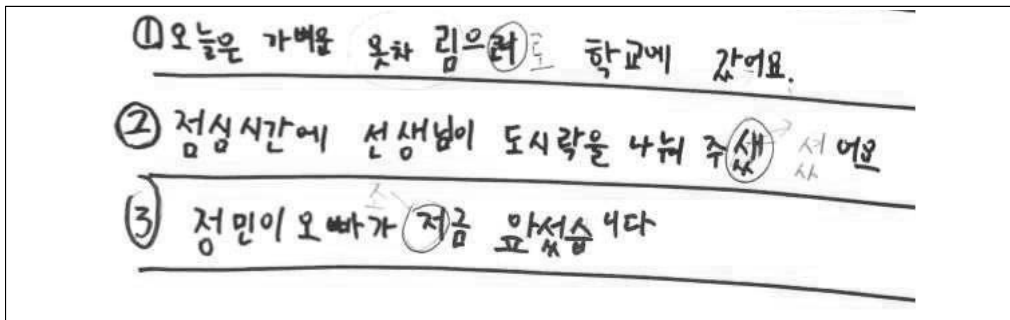 ①오늘은 가벼운 옷차 림으러 로 학교에 갔어요.
② 점심시간에 선생님이 도시락을 나눠 주샜 → 셨 어요
조
③ 정민이 오빠가 저금 앞섰습니다